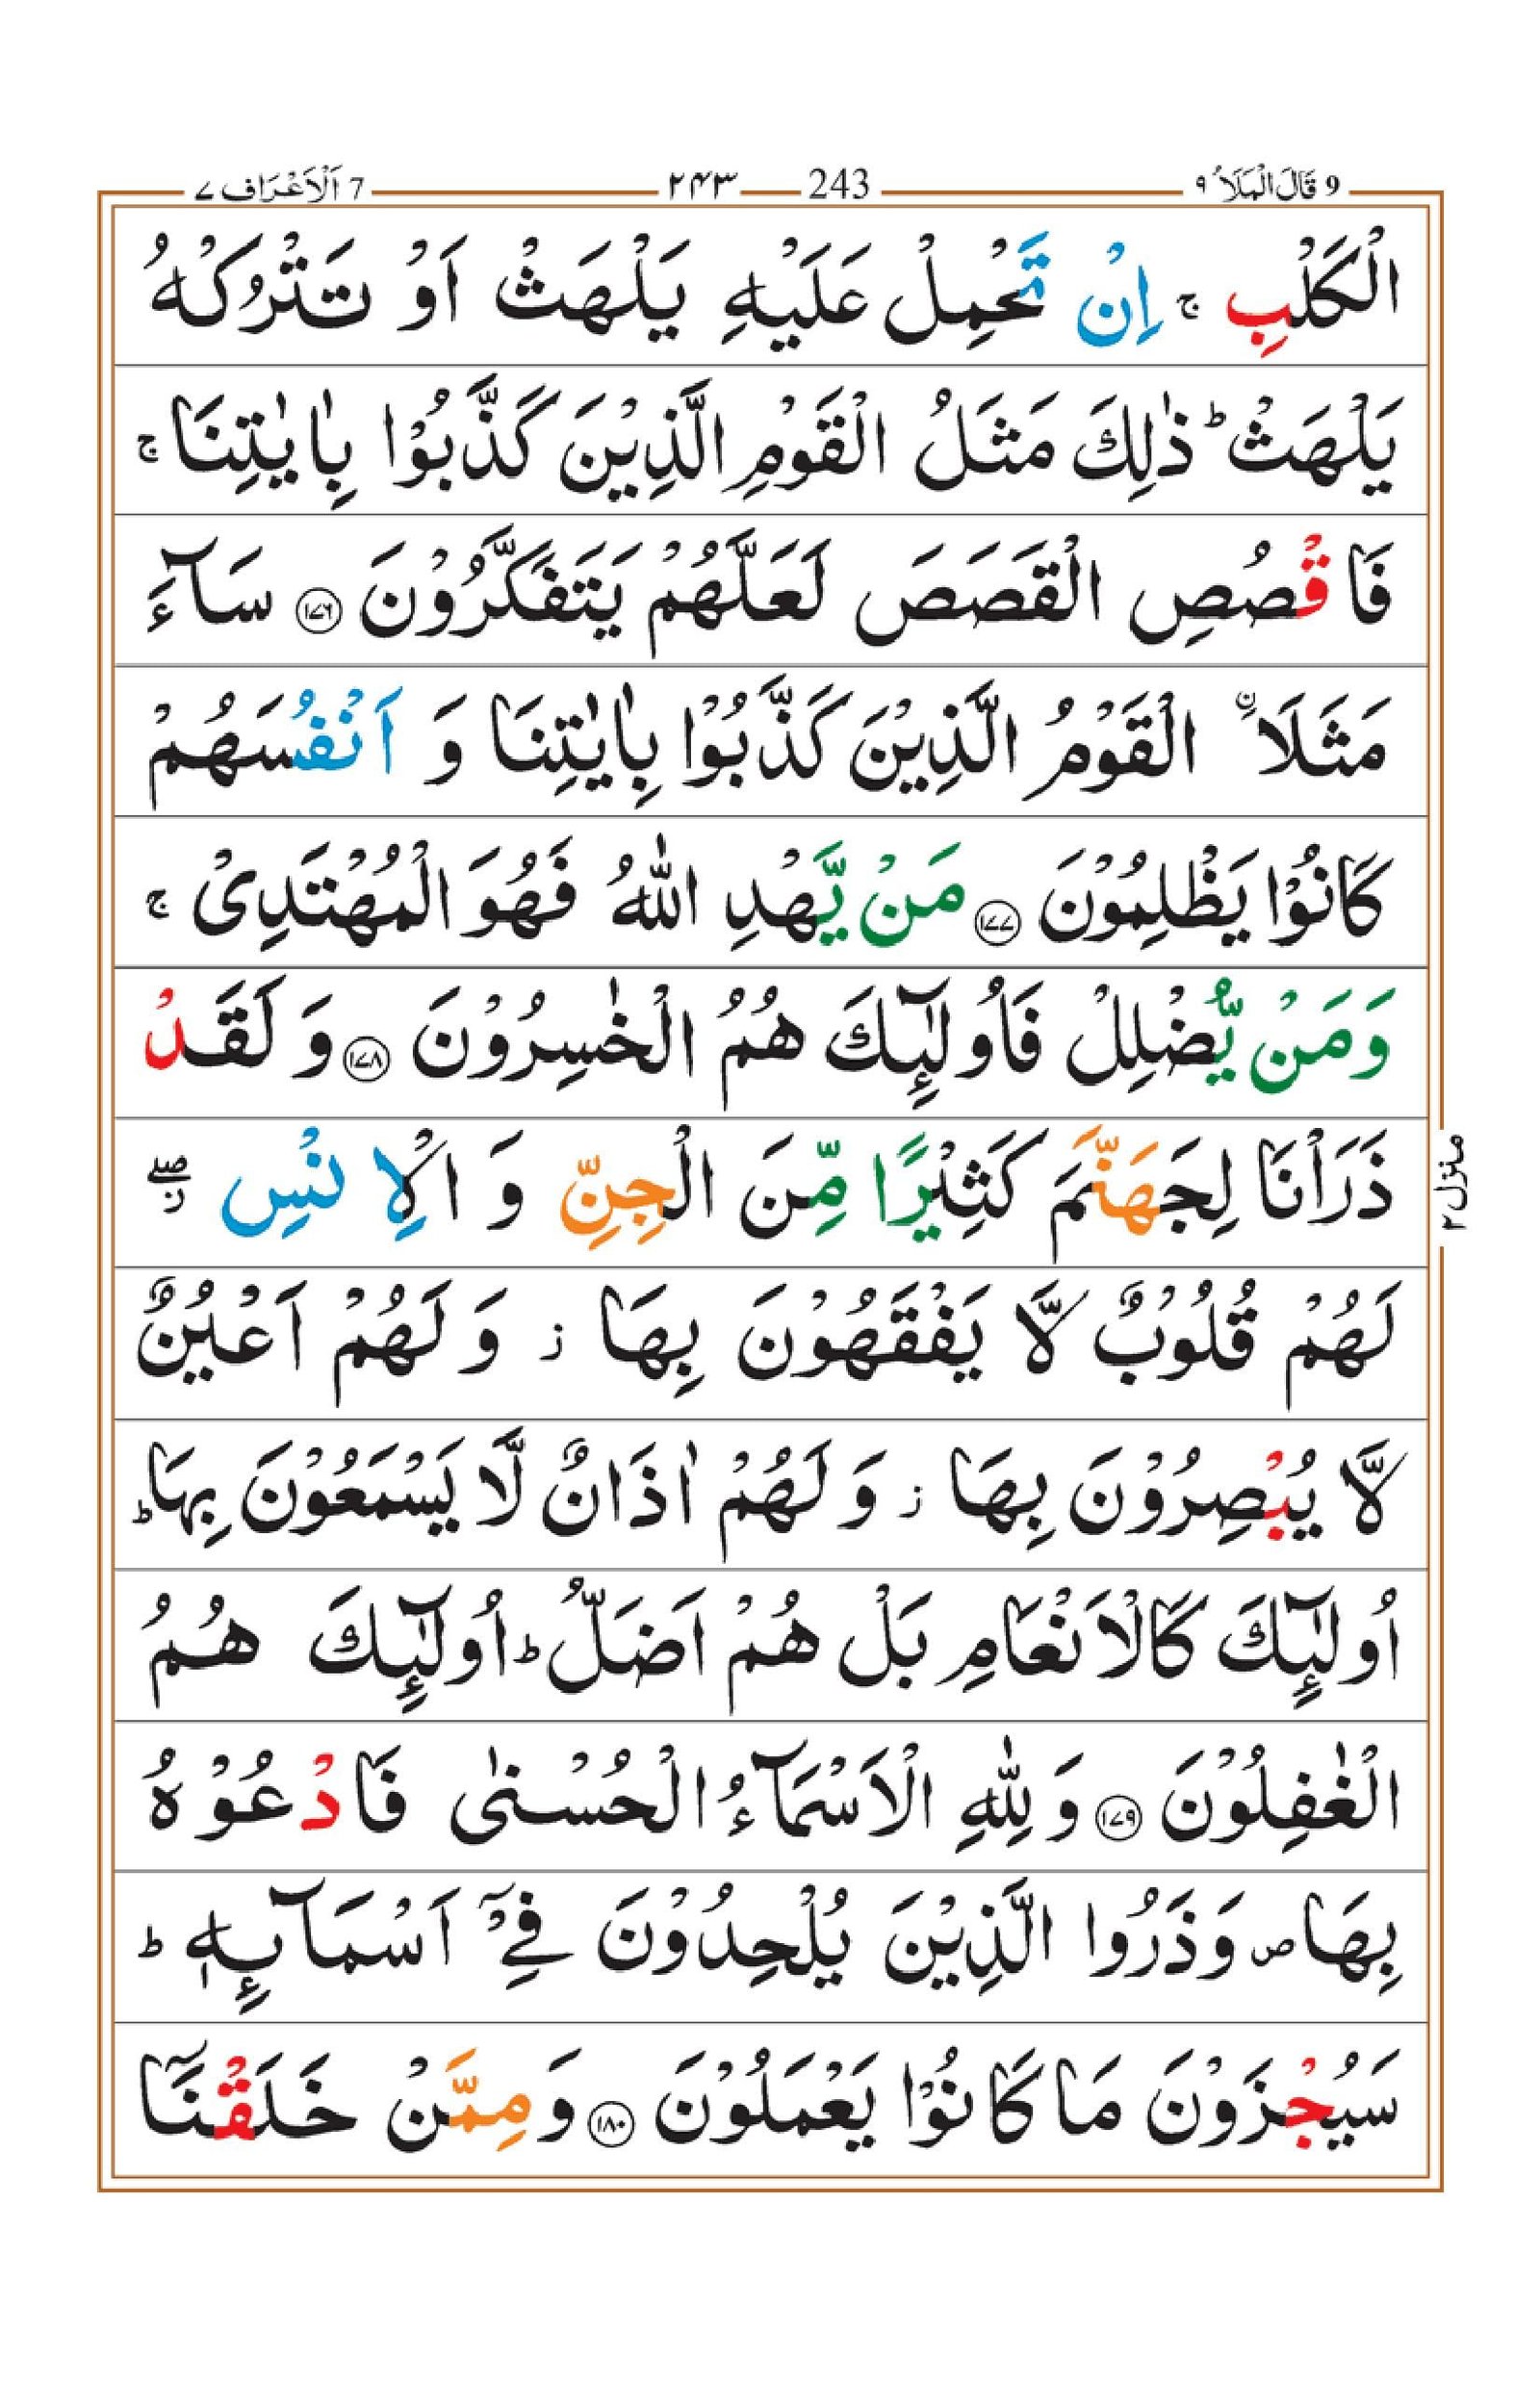 9 قَالَ الْمَلَاُ ٩ 243 ۲۴۳ 7 اَلْاَعْرَاف ٧
الْكَلْبِ ۚ اِنْ تَحْمِلْ عَلَيْهِ يَلْهَثْ اَوْ تَتْرُكْهُ
يَلْهَثْ ؕ ذٰلِكَ مَثَلُ الْقَوْمِ الَّذِيْنَ كَذَّبُوْا بِاٰيٰتِنَا ۚ
فَاقْصُصِ الْقَصَصَ لَعَلَّهُمْ يَتَفَكَّرُوْنَ ﴿۱۷۶﴾ سَآءَ
مَثَلَا ۨ الْقَوْمُ الَّذِيْنَ كَذَّبُوْا بِاٰيٰتِنَا وَ اَنْفُسَهُمْ
كَانُوْا يَظْلِمُوْنَ ﴿۱۷۷﴾ مَنْ يَّهْدِ اللّٰهُ فَهُوَ الْمُهْتَدِىْ ۚ
وَمَنْ يُّضْلِلْ فَاُولٰٓئِكَ هُمُ الْخٰسِرُوْنَ ﴿۱۷۸﴾ وَ لَقَدْ
ذَرَاْنَا لِجَهَنَّمَ كَثِيْرًا مِّنَ الْجِنِّ وَ الْاِنْسِ ۖ ز
لَهُمْ قُلُوْبٌ لَّا يَفْقَهُوْنَ بِهَا ز وَ لَهُمْ اَعْيُنٌ
لَّا يُبْصِرُوْنَ بِهَا ز وَ لَهُمْ اٰذَانٌ لَّا يَسْمَعُوْنَ بِهَا ؕ
اُولٰٓئِكَ كَالْاَنْعَامِ بَلْ هُمْ اَضَلُّ ؕ اُولٰٓئِكَ هُمُ
الْغٰفِلُوْنَ ﴿۱۷۹﴾ وَ لِلّٰهِ الْاَسْمَآءُ الْحُسْنٰى فَادْعُوْهُ
بِهَا ص وَذَرُوا الَّذِيْنَ يُلْحِدُوْنَ فِىْۤ اَسْمَآئِهٖ ؕ
سَيُجْزَوْنَ مَا كَانُوْا يَعْمَلُوْنَ ﴿۱۸۰﴾ وَمِمَّنْ خَلَقْنَاۤ
منزل ۲